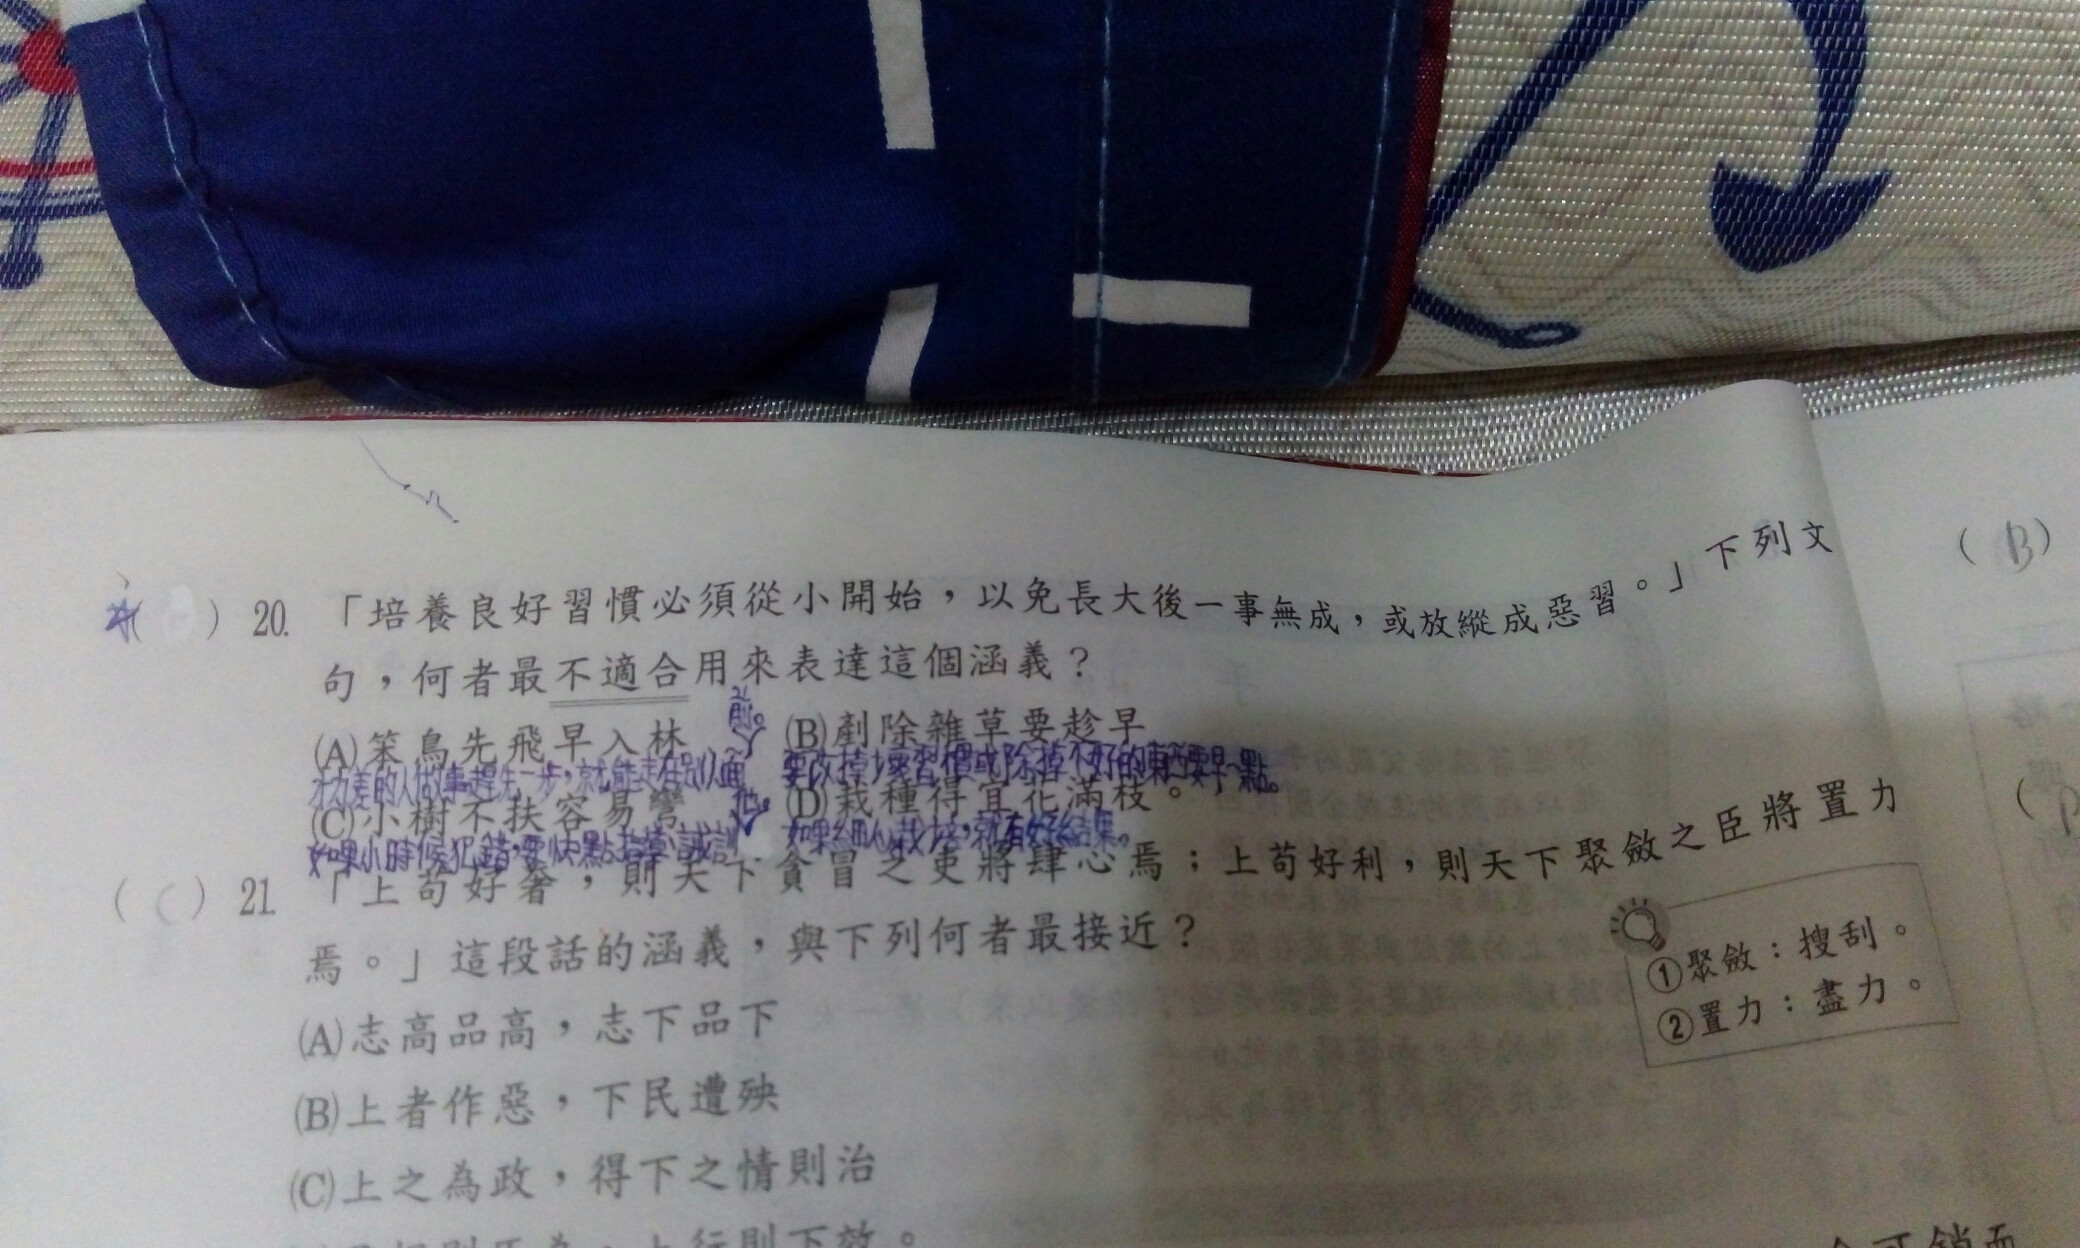 (B)
20. 「培養良好習慣必須從小開始，以免長大後一事無成，或放縱成惡習。」下列文
句，何者最不適合用來表達這個涵義？
(A)笨鳥先飛早入林 (B)剷除雜草要趁早
才力差的人做事趕先一步，就能走在別人面前。 要改掉壞習慣或除掉不好的東西要早一點。
(C)小樹不扶容易彎 (D)栽種得宜花滿枝。
如果小時候犯錯，要快點指導、誡訓他。 如果細心栽培，就有好結果。
( C ) 21 「上苟好奢，則天下貪冒之吏將肆心焉；上苟好利，則天下聚斂之臣將置力
焉。」這段話的涵義，與下列何者最接近？
①聚斂：搜刮。
②置力：盡力。
(A)志高品高，志下品下
(B)上者作惡，下民遭殃
(C)上之為政，得下之情則治
上行則下效。